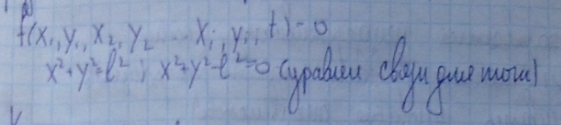 f(x₁,y₁,x₂,y₂ ... xᵢ,yᵢ,t)=0
x²+y²=l²; x²+y²-l²=0 (уравнен связи для точки)